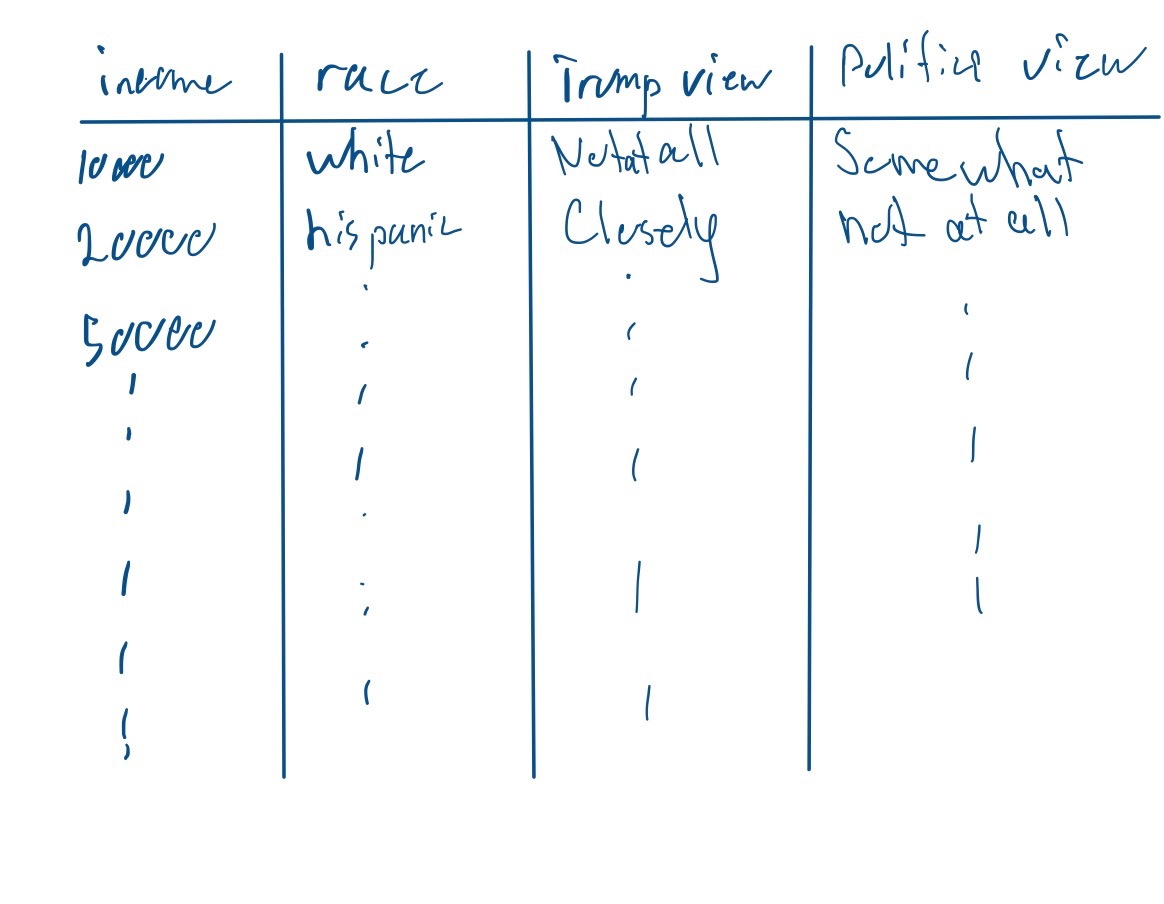 income race Trump view Politica view
10000 white Not at all Somewhat
20000 hispanic Closely not at all
50000